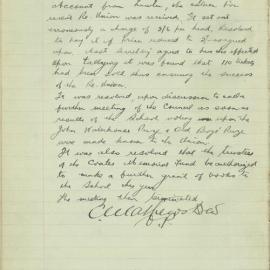 account from Hunter, the caterer for
recent Re-Union was received. It set out
erroneously a charge of 3/6 per head. Resolved
to pay it if Price reduced to 3/- as agreed
upon. Asst Secretary agreed to have this effected
Upon tallying it was found that 110 tickets
had been sold thus ensuring the success
of the Re-Union.
It was resolved upon discussion to call a
further meeting of the Council as soon as
results of the School voting upon the
John Waterhouse Prize & Old Boys' Prize
were made known to the Union.
It was also resolved that the trustees
of the Coates Memorial Fund be authorized
to make a further grant of books to
the School this year.
The meeting then terminated